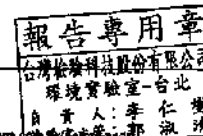 報告專用章
台灣檢驗科技股份有限公司
環境實驗室-台北
負責人:李仁
郭淑